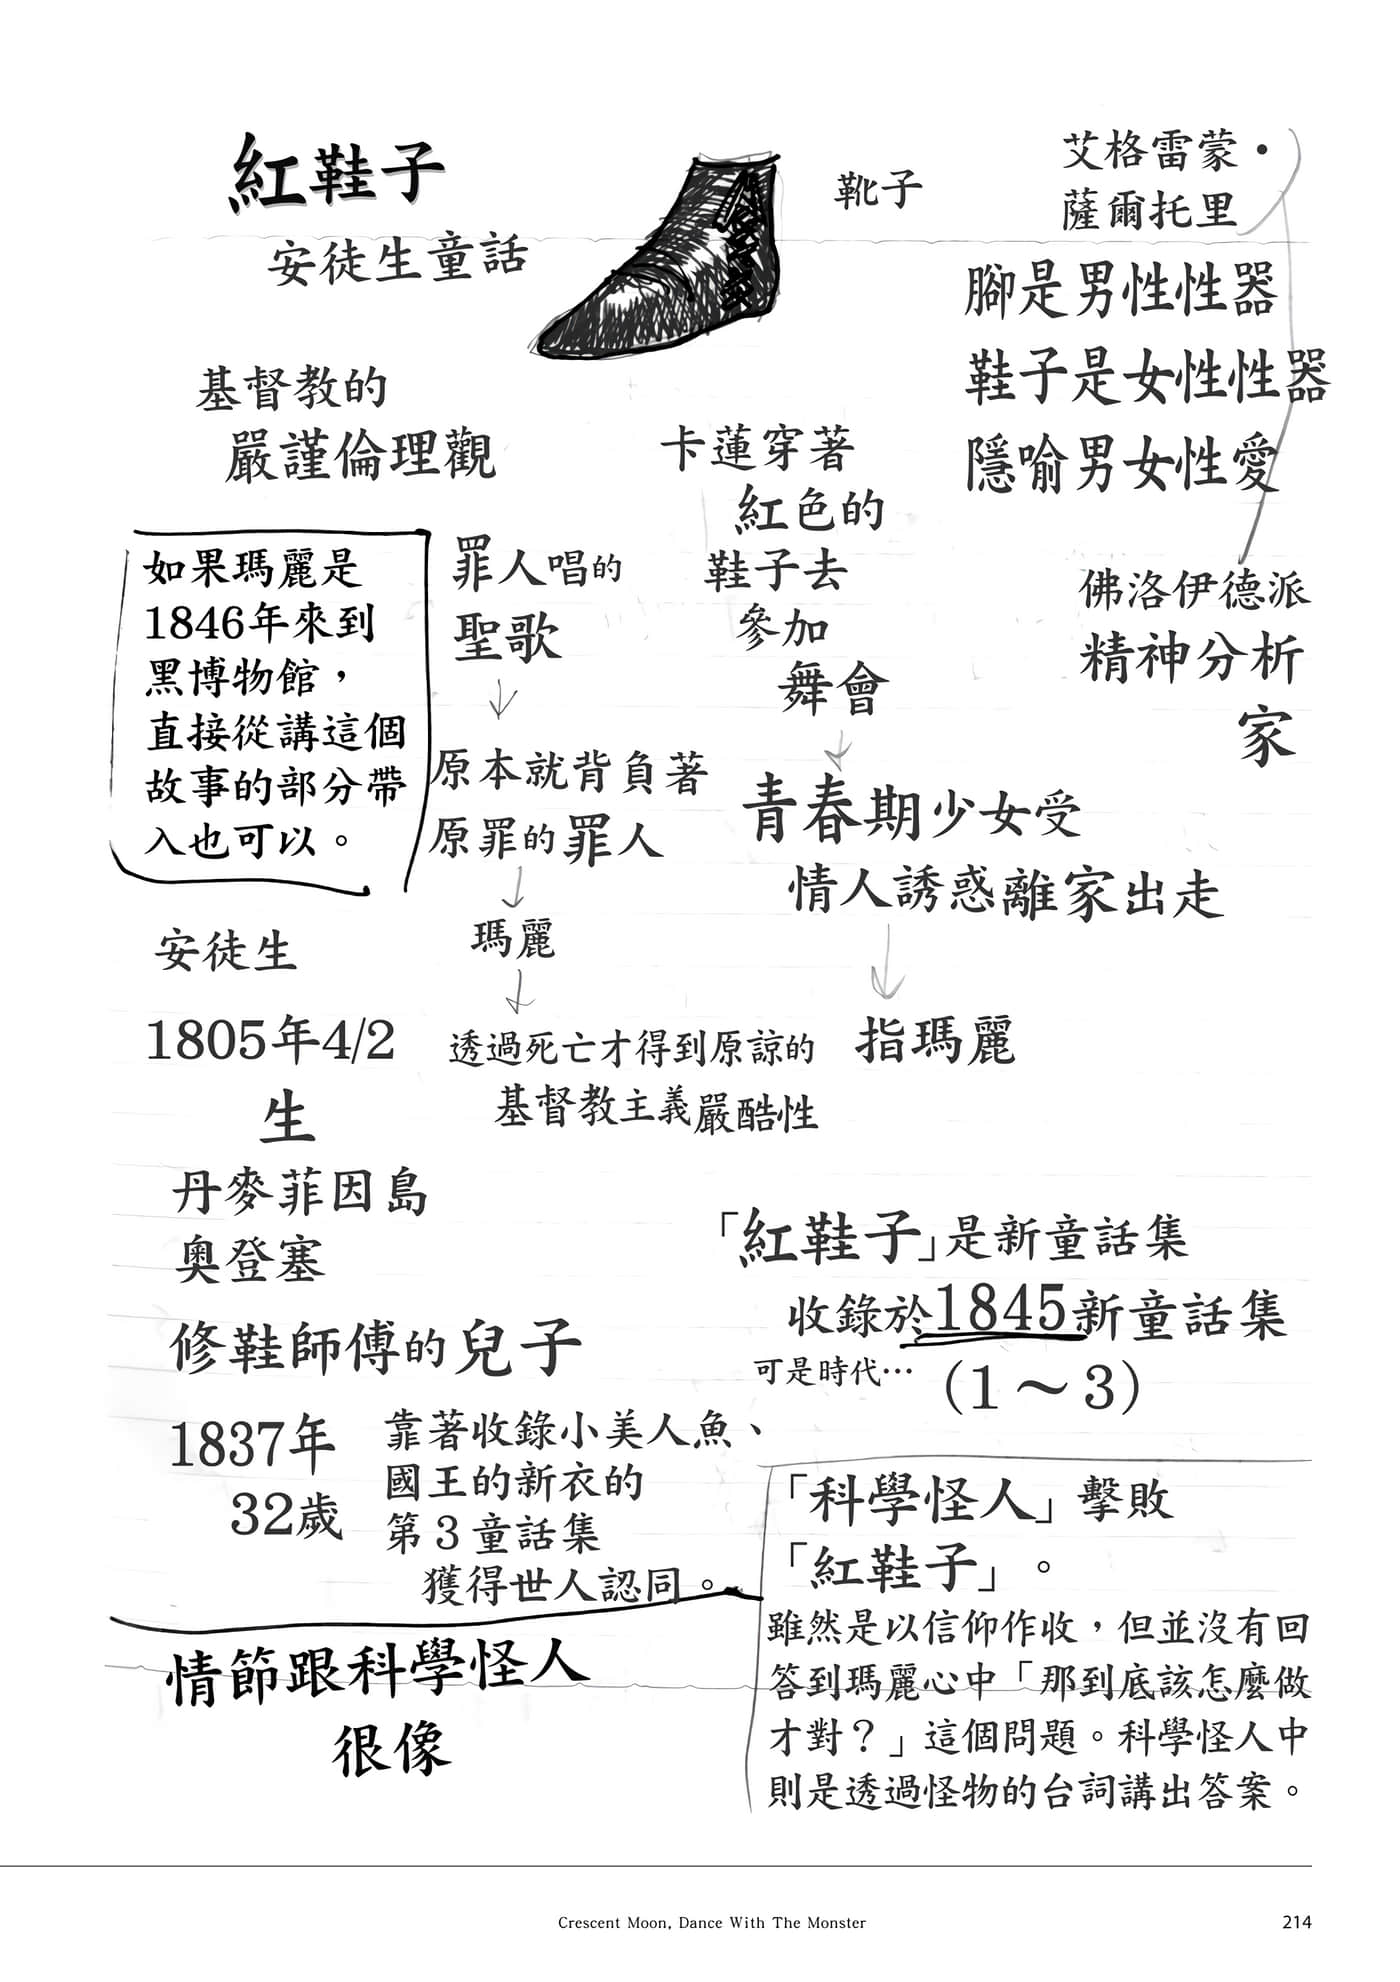 紅鞋子
安徒生童話
靴子
艾格雷蒙・
薩爾托里
腳是男性性器
鞋子是女性性器
隱喻男女性愛
佛洛伊德派
精神分析
家
基督教的
嚴謹倫理觀
如果瑪麗是
1846年來到
黑博物館，
直接從講這個
故事的部分帶
入也可以。
罪人唱的
聖歌
原本就背負著
原罪的罪人
瑪麗
透過死亡才得到原諒的
基督教主義嚴酷性
卡蓮穿著
紅色的
鞋子去
參加
舞會
青春期少女受
情人誘惑離家出走
指瑪麗
安徒生
1805年4/2
生
丹麥菲因島
奧登塞
修鞋師傅的兒子
1837年
32歲
靠著收錄小美人魚、
國王的新衣的
第3童話集
獲得世人認同。
「紅鞋子」是新童話集
收錄於1845新童話集
可是時代…
（1～3）
情節跟科學怪人
很像
「科學怪人」擊敗
「紅鞋子」。
雖然是以信仰作收，但並沒有回
答到瑪麗心中「那到底該怎麼做
才對？」這個問題。科學怪人中
則是透過怪物的台詞講出答案。
Crescent Moon, Dance With The Monster
214